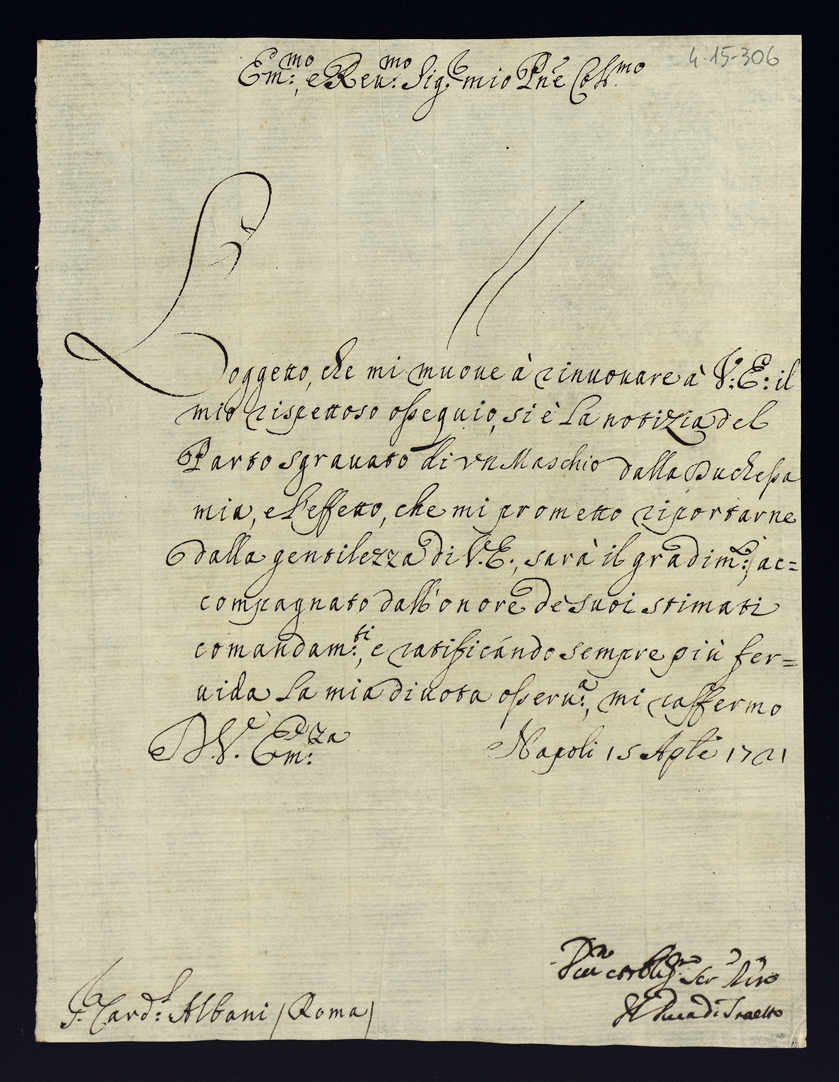 4-15-306
Em.mo, e Reu.mo Sig.r mio Pne Coll.mo
Soggetto, che mi muoue à rinuouare à V: E: il
mio rispettoso ossequio, si è la notizia del
Parto sgrauato di vn Maschio dalla Duchessa
mia, e l'effetto, che mi prometto riportarne
dalla gentilezza di V. E., sarà il gradim.to, ac=
compagnato dall'onore de suoi stimati
comandam.ti, e ratificándo sempre più fer=
uida la mia diuota osseru.a, mi raffermo
D. V. Em.za
Napoli 15 Aple 1721
Diu.mo et obblig.mo Ser.
Il Duca di
S.r Card.l Albani (Roma)